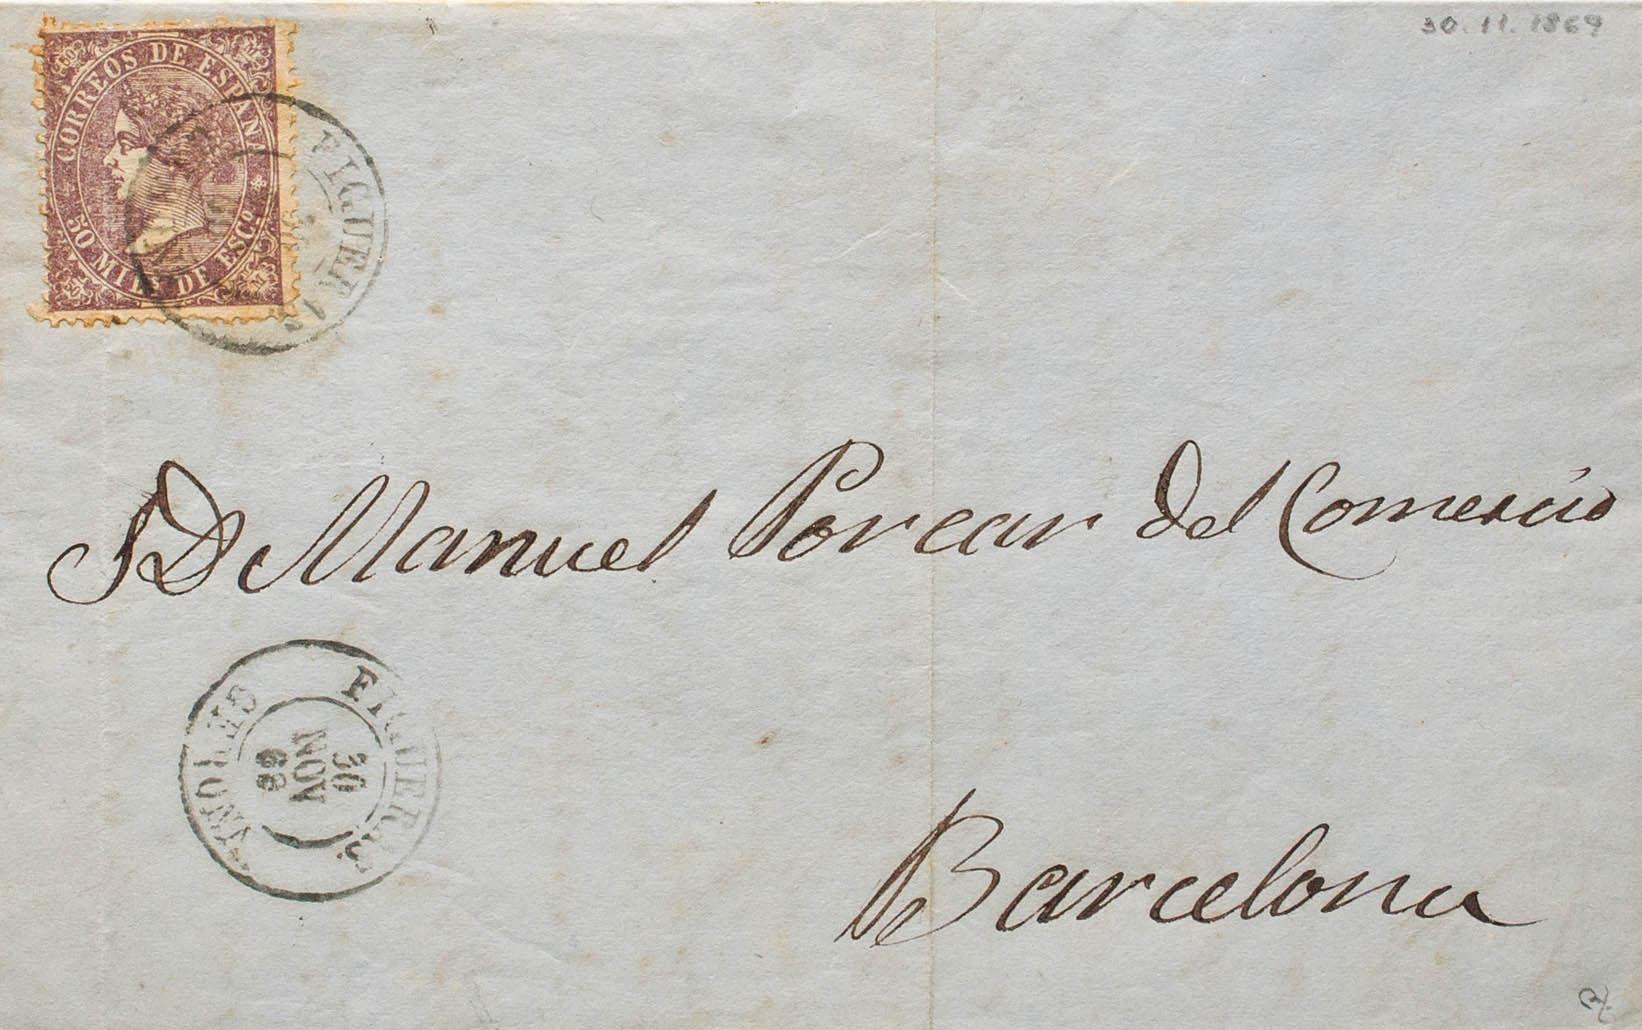 30.11.1869
CORREOS DE ESPAÑA
50 MIL. DE ESCO.
FIGUERAS
S D Manuel Porcar del Comercio
FIGUERAS
30
NOV
69
GERONA
Barcelona